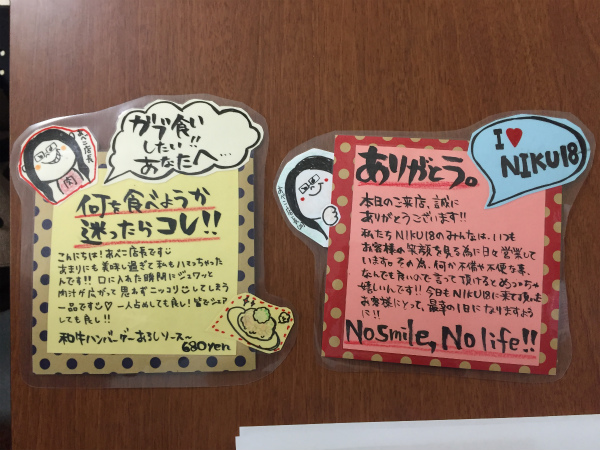 あべこ店長
肉
ガブ食い
したい!!
あなたへ…
何を食べようか
迷ったらコレ!!
こんにちは!あべこ店長です
あまりにも美味し過ぎて私もハマっちゃった
んです!! 口に入れた瞬間にジュワッと
肉汁が広がって思わずニッコリしてしまう
一品です♡ 一人占めしても良し!皆でシェア
しても良し!!
和牛ハンバーグ～おろしソース～
680yen
I♥
NIKU18
ありがとう。
本日のご来店、誠に
ありがとうございます!!
私たちNIKU18のみんなは、いつも
お客様の笑顔を見る為に日々営業して
います。その為、何か不備や不便な事、
なんでも良いので言って頂けるとめっちゃ
嬉しいんです!!今日もNIKU18に来て頂いた
お客様にとって、最幸の1日になりますよう
に!!
No smile, No life!!